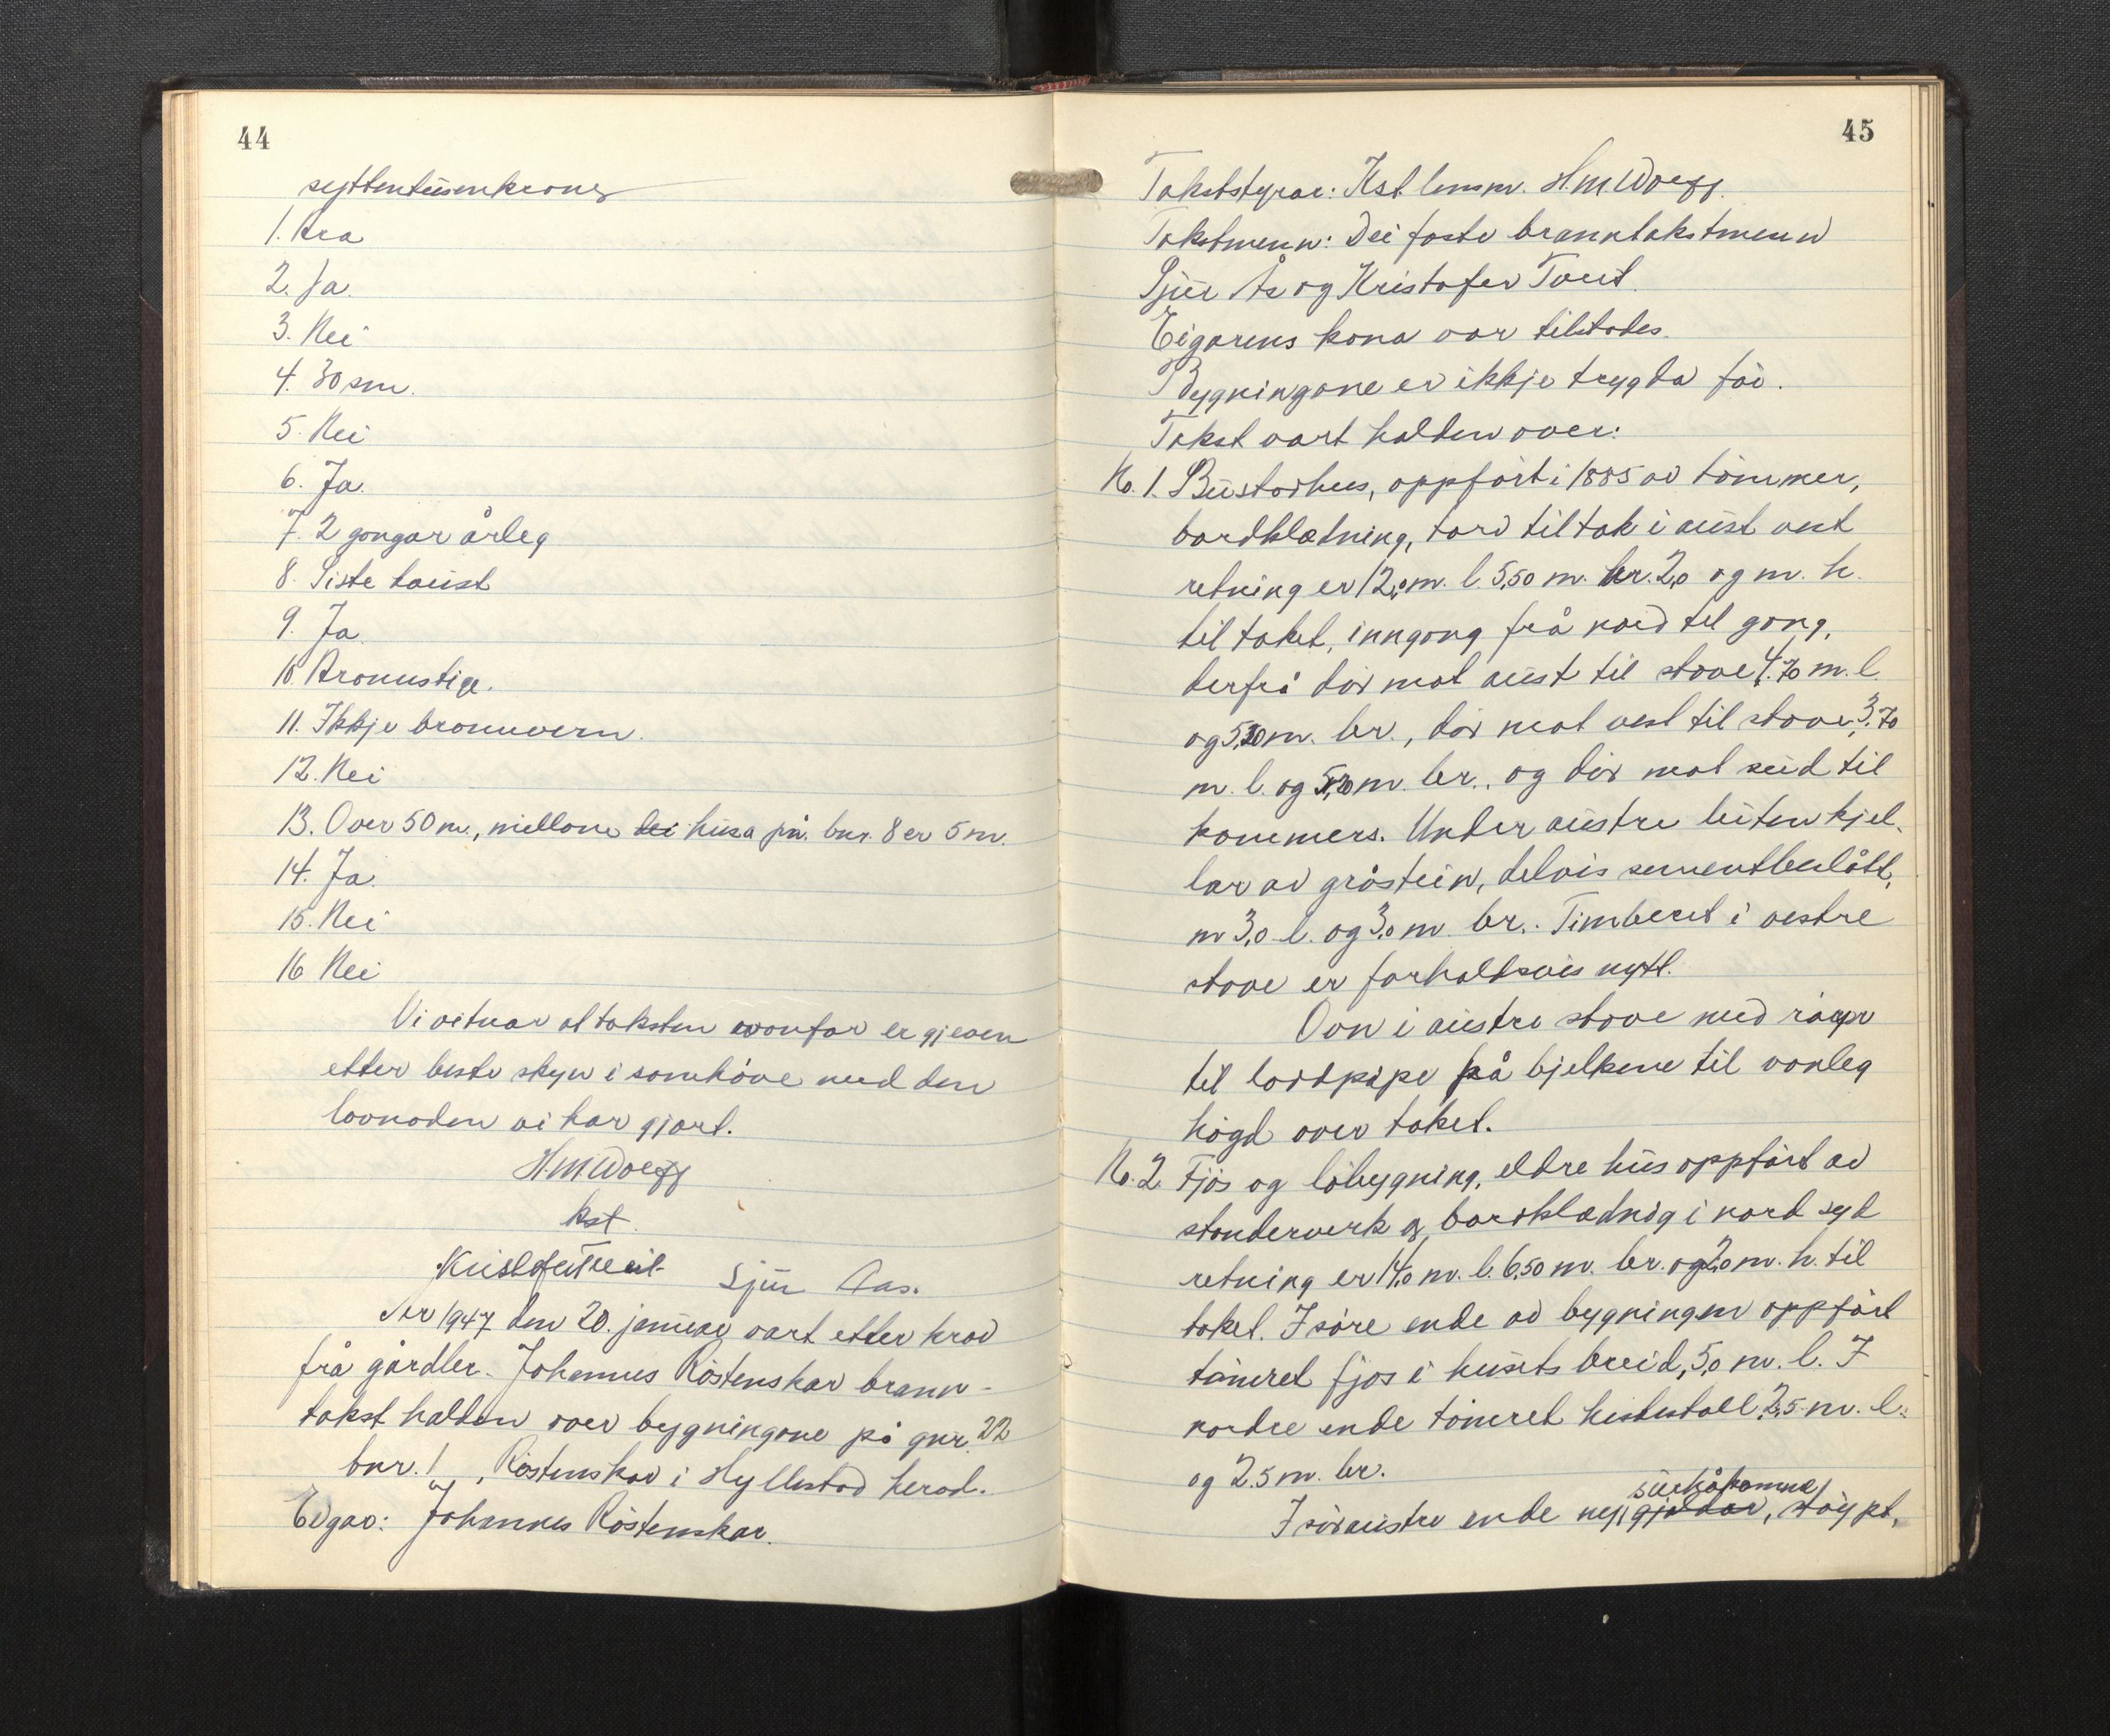 44
syttentusenkroner
1. Bra
2. Ja.
3. Nei
4. 30 sm.
5. Nei
6. Ja.
7. 2 gongar årleg
8. Siste haust
9. Ja.
10. Brannstige.
11. Ikkje brannvern.
12. Nei
13. Over 50 m., millom dei husa på bnr. 8 er 5 m.
14. Ja.
15. Nei
16 Nei
Vi vitnar at taksten ovanfor er gjeven
etter beste skyn i samhøve med den
lovnaden vi har gjort.
H.M. Woegg
kst.
Kristofer Tveit Sjur Aas.
År 1947 den 20. januar vart etter krav
frå gardbr. Johannes Røstenskar brann-
takst halden over bygningane på gnr. 22
bnr. 1, Røstenskar i Hyllestad herad.
Eigar: Johannes Røstenskar.
45
Takststyrar: Kst. lensm. H.M. Woegg.
Takstmenn: Dei faste branntakstmenn
Sjur Ås og Kristofer Tveit.
Eigarens kona var tilstades.
Bygningane er ikkje trygda før.
Takst vart halden over:
No. 1. Bustadhus, oppført i 1885 av tømmer,
bordklædning, torv til tak i aust vest
retning er 12,0 m. l. 5,50 m. br. 2,0 og m. h.
til taket, inngong frå nord til gong,
derfrå dør mot aust til stove 4.70 m. l.
og 5,20 m. br., dør mot vest til stove, 3,70
m. l. og 5,20 m. br., og dør mot sud til
kammers. Under austre luten kjel-
lar av gråstein, delvis sementbeslått,
m 3,0 l. og 3,0 m. br.. Timberet i vestre
stove er forholdsvis nytt.
Ovn i austre stove med røyr
til lordpipe på bjelkene til vanleg
høgd over taket.
No. 2. Fjøs og løbygning, eldre hus oppført av
standerverk og bordklædnig i nord syd
retning er 14,0 m. l. 6,50 m. br. og 2,0 m. h. til
taket. I søre ende av bygningen oppført
tømret fjøs i husets breid, 5,0 m. l. I
nordre ende tømret hestestall 2,5 m. l.
og 2.5 m. br.
surhåkamna
I søraustre ende ny gjødar, støypt,